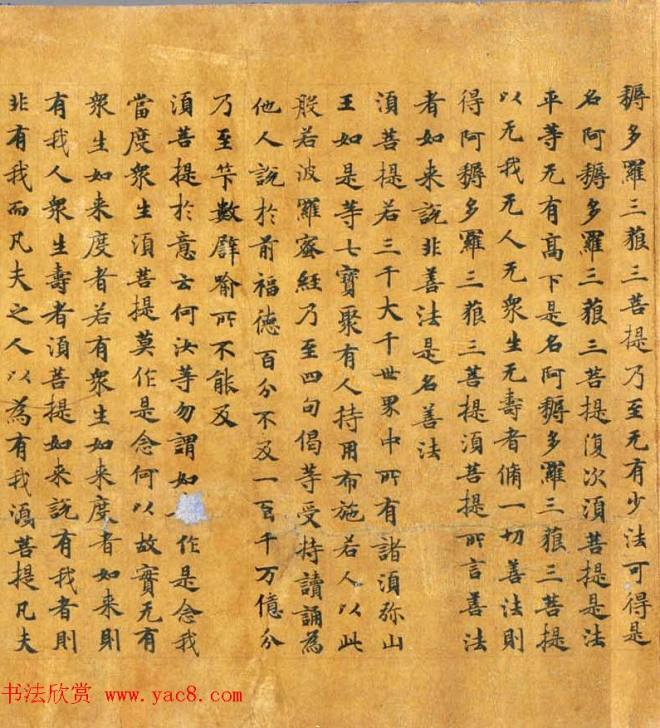 耨多羅三藐三菩提乃至无有少法可得是
名阿耨多羅三藐三菩提復次湏菩提是法
平等无有高下是名阿耨多羅三藐三菩提
以无我无人无衆生无壽者脩一切善法則
得阿耨多羅三藐三菩提湏菩提所言善法
者如来說非善法是名善法
湏菩提若三千大千世界中所有諸湏弥山
王如是等七寶聚有人持用布施若人以此
般若波羅蜜經乃至四句偈等受持讀誦為
他人說於前福德百分不及一百千万億分
乃至筭數譬喻所不能及
湏菩提於意云何汝等勿謂如作是念我
當度衆生湏菩提莫作是念何以故實无有
衆生如来度者若有衆生如来度者如来則
有我人衆生壽者湏菩提如来說有我者則
非有我而凡夫之人以為有我湏菩提凡夫
书法欣赏 www.yac8.com